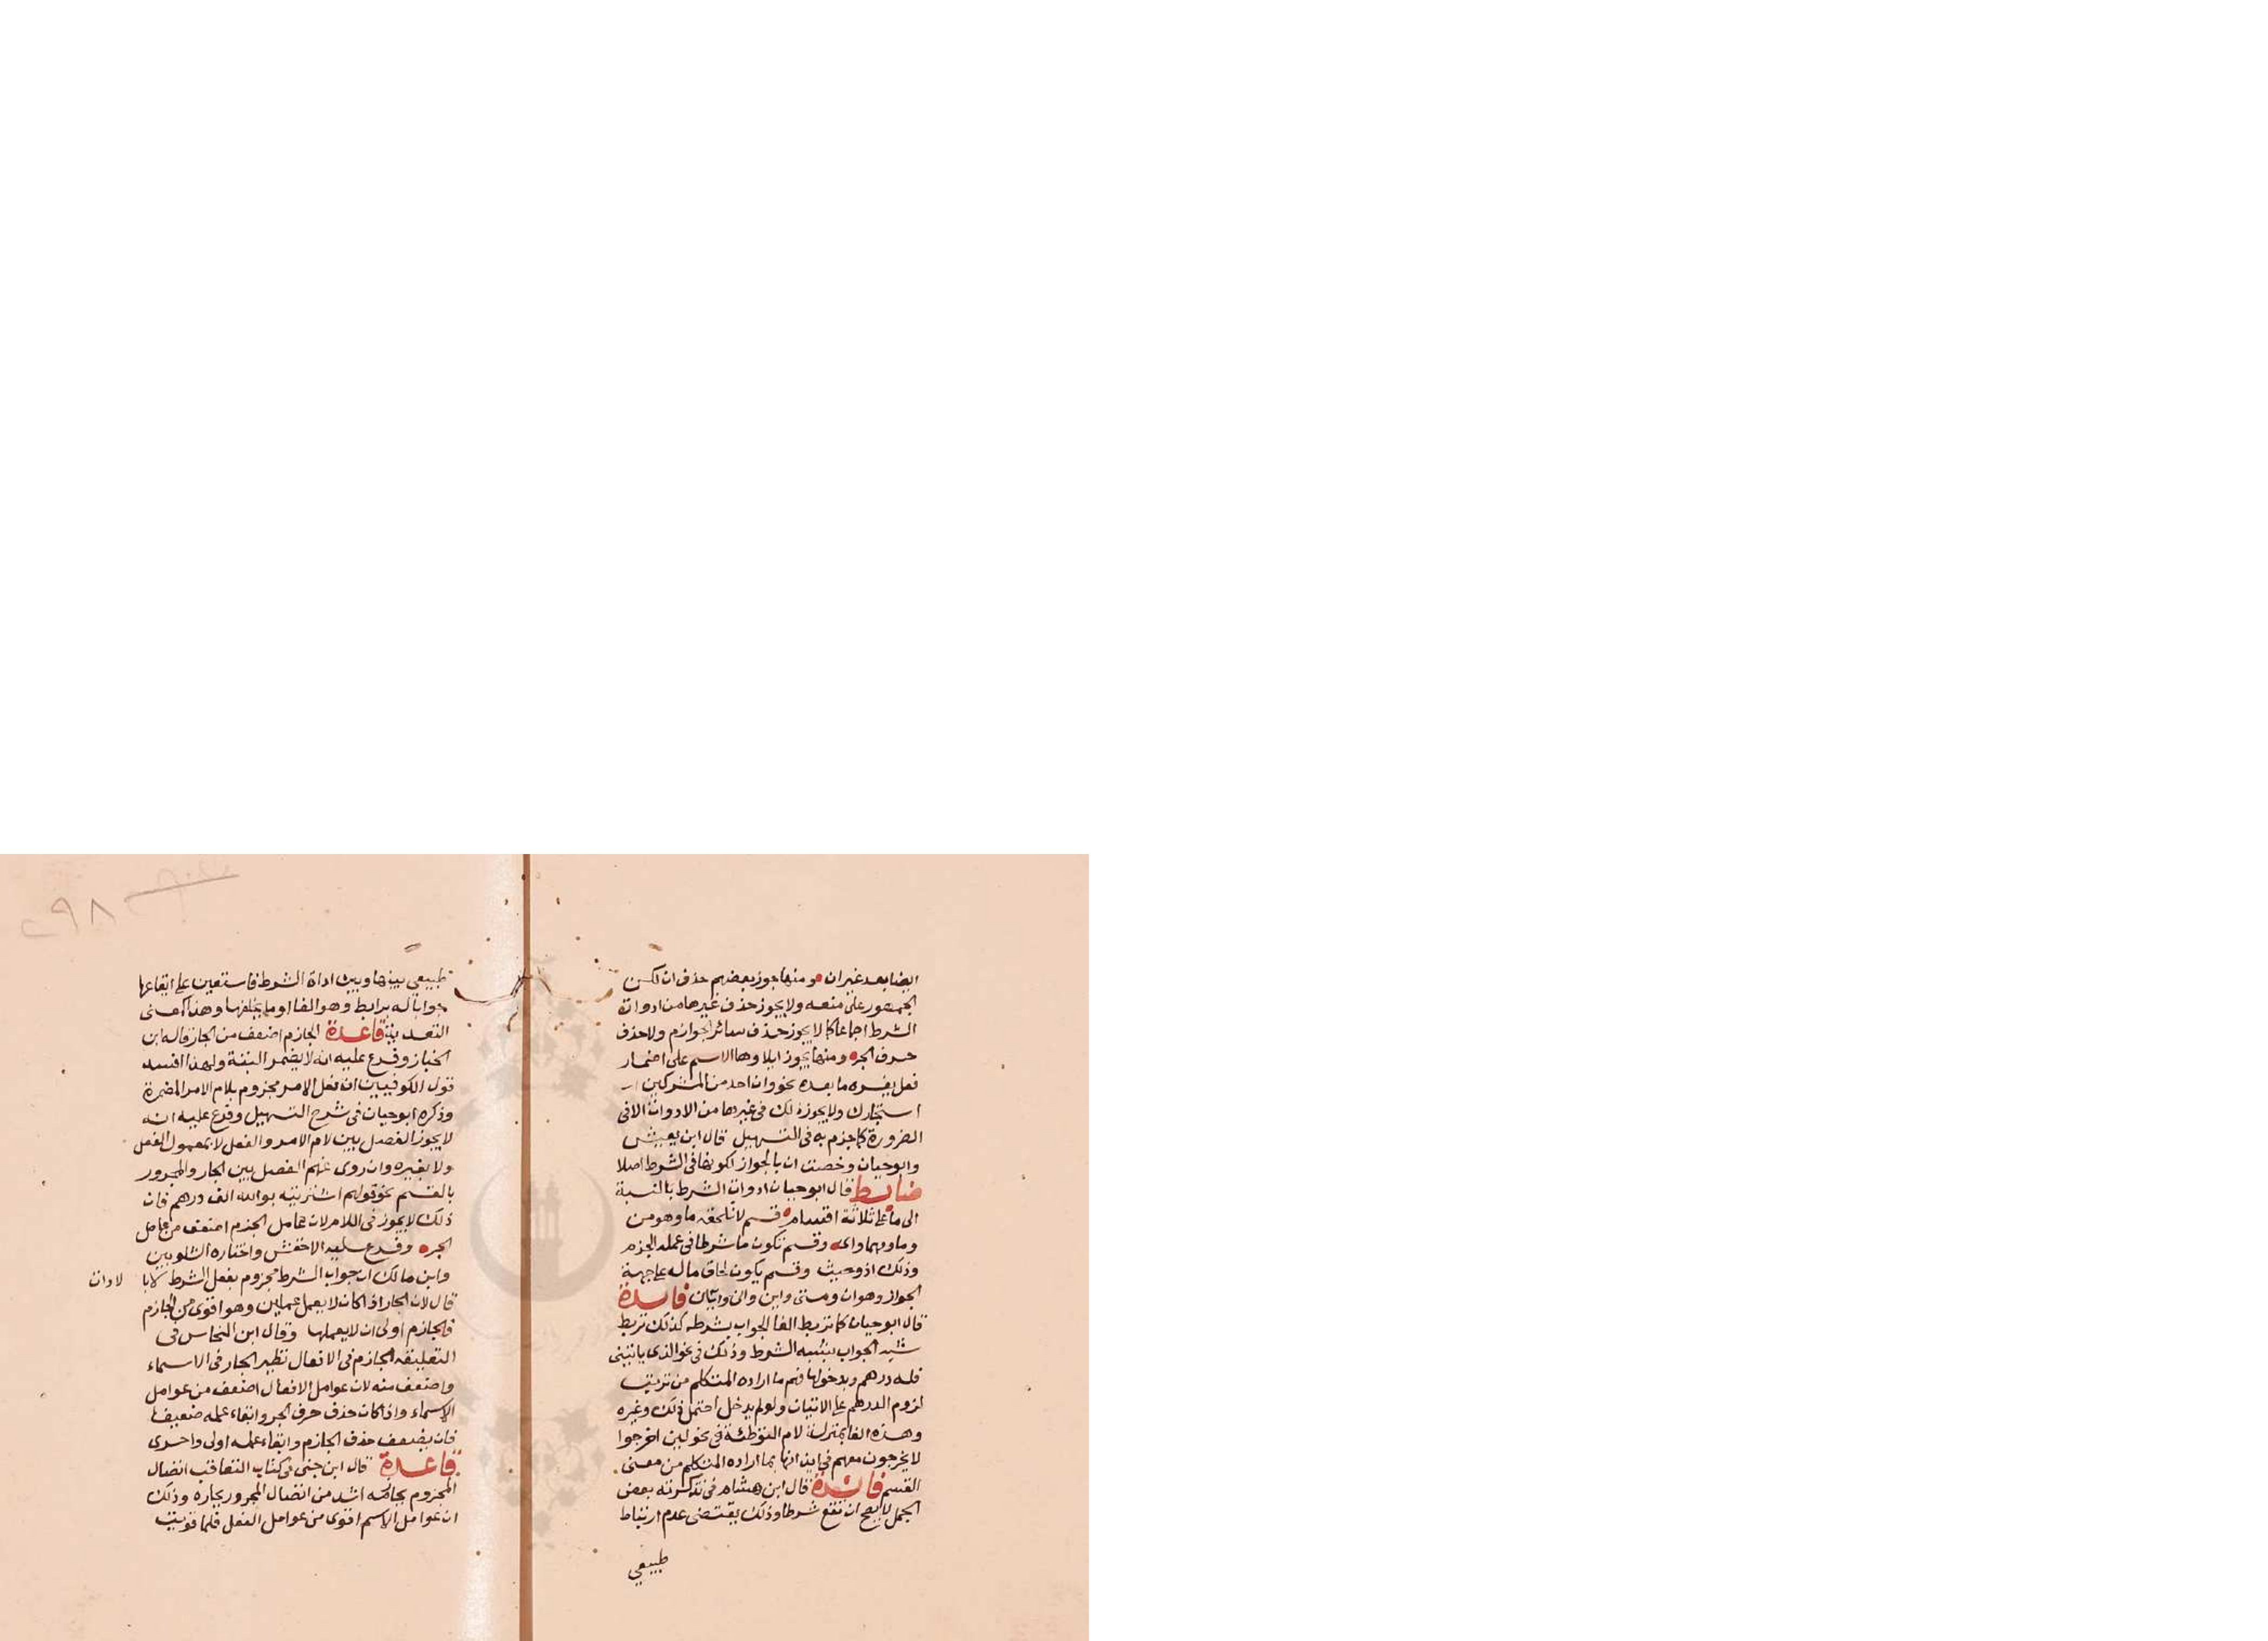 ايضا بعد غير ان ومنها جوز بعضهم حذف ان لكن
الجمهور على منعه ولا يجوز حذف غيرها من ادوات
الشرط اجماعا كما لا يجوز حذف سائر الجوازم ولا حذف
حرف الجر ومنها يجوز ايلاوها الاسم على اضمار
فعل يفسره ما بعده نحو وان احد من المشركين
استجارك ولا يجوز ذلك في غيرها من الادوات الا في
الضرورة كما جزم به في التسهيل قال ابن يعيش
وابو حيان وخصت ان بالجواز لكونها في الشرط اصلا
ضابط قال ابو حيان ادوات الشرط بالنسبة
الى ما على ثلاثة اقسام قسم لا تلحقه ما وهو من
وما ومهما واى وقسم تكون ما شرطا في عمله الجزم
وذلك اذ وحيث وقسم يكون لحاق ما له على جهة
الجواز وهو ان ومتى واين واى وايان فائدة
قال ابو حيان كما تربط الفا الجواب بشرطه كذلك تربط
شبه الجواب بشبه الشرط وذلك في نحو الذى ياتيني
فله درهم وبدخولها فهم ما اراده المتكلم من ترتيب
لزوم الدرهم على الاتيان ولو لم يدخل احتمل ذلك وغيره
وهذه الفا بمنزلة لام التوطئة في نحو لين اخرجوا
لا يخرجون معهم في ايذانها بما اراده المتكلم من معنى
القسم فائدة قال ابن هشام في تذكرته بعض
الجمل لا يصح ان تقع شرطا وذلك يقتضى عدم ارتباط
طبيعي
طبيعي بينها وبين اداة الشرط فاستعين على ايقاعها
جوابا له برابط وهو الفا او ما يخلفها وهذا كمعنى
التعدية قاعدة الجازم اضعف من الجار قاله ابن
الخباز وفرع عليه انه لا يضمر البتة ولهذا افسد
قول الكوفيين ان فعل الامر مجزوم بلام الامر المضمرة
وذكره ابو حيان في شرح التسهيل وفرع عليه انه
لا يجوز الفصل بين لام الامر والفعل لا بمعمول الفعل
ولا بغيره وان روى عنهم الفصل بين الجار والمجرور
بالقسم نحو قولهم اشتريته بوالله الف درهم فان
ذلك لا يجوز في اللام لان عامل الجزم اضعف من عامل
الجر وفرع عليه الاخفش واختاره الشلوبين
وابن مالك ان جواب الشرط مجزوم بفعل الشرط لا بالادات
قال لان الجار اذا كان لا يعمل عملين وهو اقوى من الجازم
فالجازم اولى ان لا يعملها وقال ابن النحاس في
التعليقه الجازم في الافعال نظير الجار في الاسماء
واضعف منه لان عوامل الافعال اضعف من عوامل
الاسماء واذا كان حذف حرف الجر وابقاء عمله ضعيفا
فان يضعف حذف الجازم وابقاء عمله اولى واحرى
قاعدة قال ابن جنى في كتاب التعاقب اتصال
المجزوم بجازمه اشد من اتصال المجرور بجاره وذلك
ان عوامل الاسم اقوى من عوامل الفعل فلما قويت